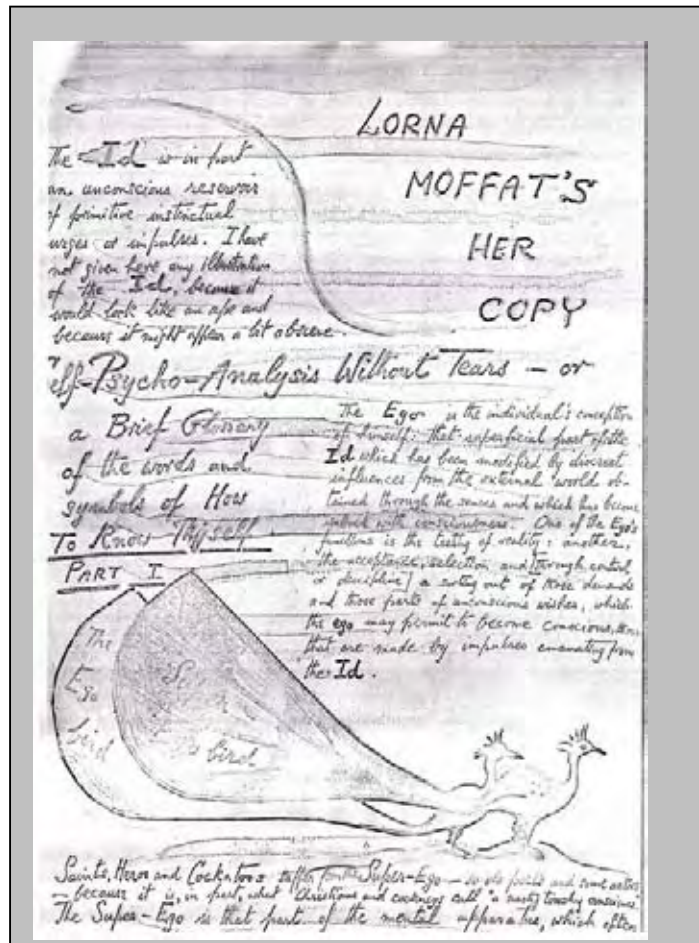 LORNA
MOFFAT'S
HER
COPY
The Id is in part
an unconscious reservoir
of primitive instinctual
urges or impulses. I have
not given here any illustration
of the Id, because it
would look like an ape and
because it might appear a bit obscene.
elf-Psycho-Analysis Without Tears – or
a Brief Glossary
of the words and
symbols of How
To Know Thyself
PART I
The Ego is the individual's conception
of himself: that superficial part of the
Id which has been modified by discreet
influences from the external world ob-
tained through the senses and which has become
imbued with consciousness. One of the Ego's
functions is the testing of reality: another,
the acceptance, selection, and (through control
or discipline) a sorting out of those demands
and those parts of unconscious wishes, which
the ego may permit to become conscious,
that are made by impulses emanating from
the Id.
The
Ego
bird
bird
Saints, Heros and Cockatoos suffer from the Super-Ego – so do poets and some actors
– because it is, in part, what Christians and cockneys call "a nasty touchy conscience
The Super-Ego is that part of the mental apparatus, which often